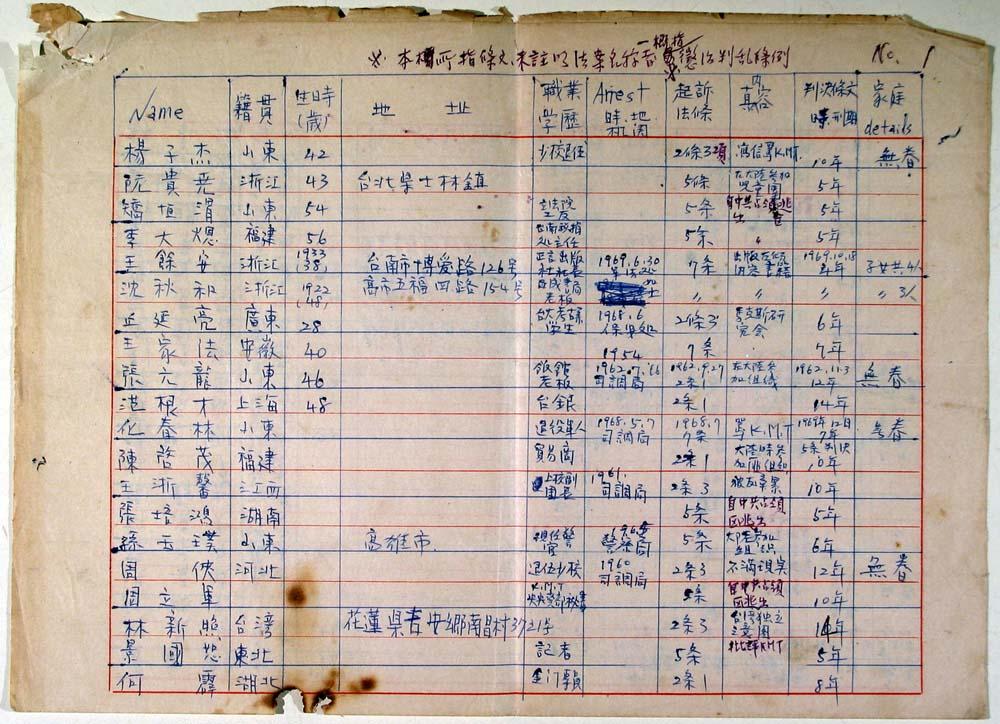 ※本欄所指條文未註明法案名称者一概指懲治判乱條例 No. 1
Name 籍貫 生日時(歲) 地址 職業学歷 Arrest 時.地机関 起訴法條 内容 判決條文時.刑期 家庭details
楊子杰 山東 42 少校退伍 2條3項 寫信罵K.M.T. 10年 無眷
阮貴堯 浙江 43 台北県士林鎮 5條 在大陸参加児童團 5年
矯恒渭 山東 54 立法院工友 5条 自中共占領逃出 5年
李大 福建 56 主任 5条 〃 5年
王餘安 浙江 1933(38) 台南市博愛路126号 正言出版社社長 1969.6.30 7条 出版 書籍 1969.10.18 年 子女共4人
沈秋和 浙江 1922(48) 高市五福四路154号 老板 〃 〃 〃 〃 3人
丘延亮 廣東 28 台大考古学生 1968.6 保安処 2條3 馬克斯研究会 6年
王家法 安徽 40 1954 7条 7年
張六龍 山東 46 飯館老板 1962.7. 司調局 1962.9.27 2条1 在大陸参加組織 1962.11.3 12年 無眷
港根才 上海 48 台銀 2条1 14年
化春林 山東 退役軍人 1968.5.7 司調局 1968.7 7条 罵K.M.T 1968年12日 7年 無眷
陳啓茂 福建 貿易商 2条1 大陸時参加匪組織 5条判決 10年
王浙馨 江西 上校副團長 1961. 司調局 2条3 被友牽累 10年
張培鴻 湖南 5条 自中共占領区逃出 5年
孫玉璞 山東 高雄市. 現任警官 5条 大陸参加組織 6年
周俠 河北 退伍少校 1960 司調局 2条3 不滿現实 12年 無眷
周立軍 K.M.T 5条 自中共占領区逃出 10年
林新照 台湾 花蓮県吉安郷南昌村3721号 2条3 台湾独立 14年
景國恕 東北 記者 5条 批評KMT 5年
何霹 湖北 金门專員 2条1 8年